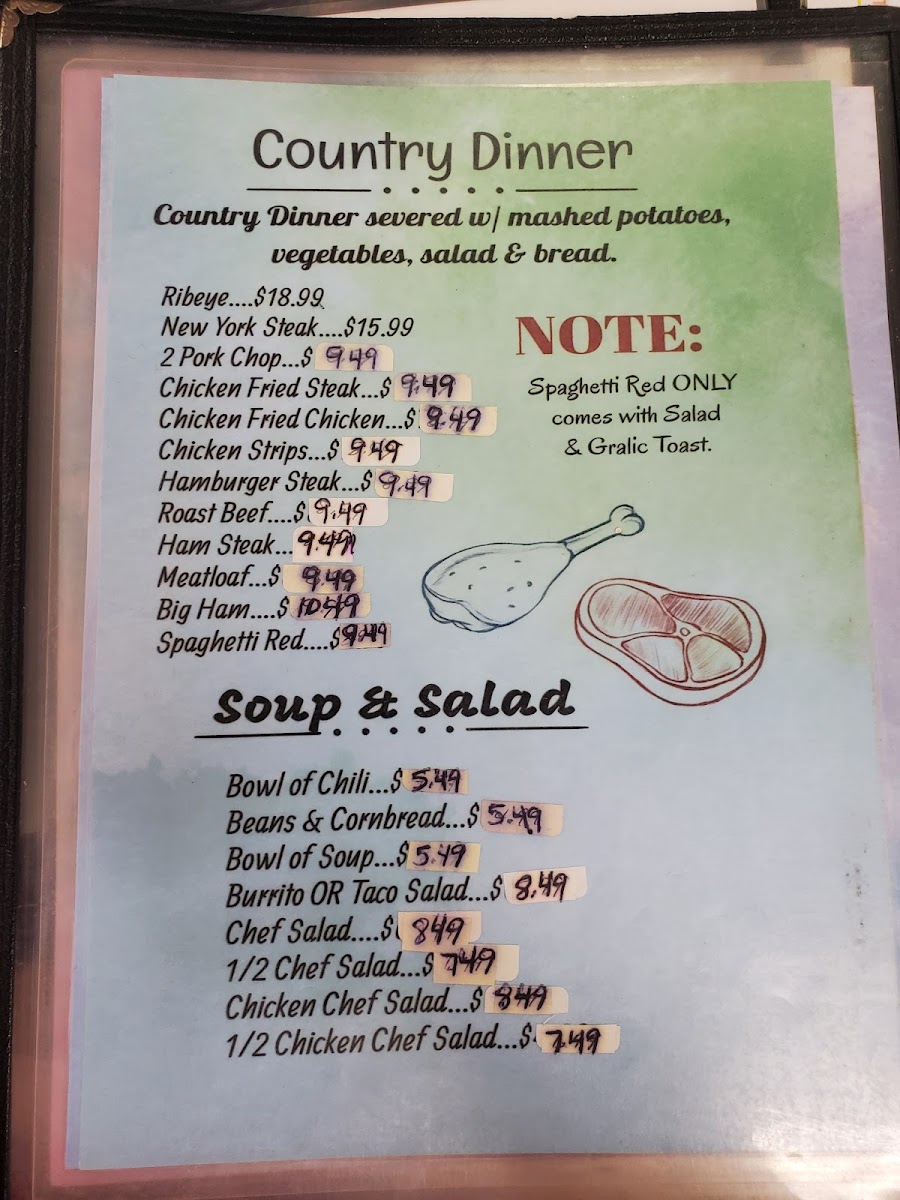 Country Dinner
Country Dinner severed w/ mashed potatoes,
vegetables, salad & bread.
Ribeye....$18.99
New York Steak....$15.99
2 Pork Chop...$ 9.49
Chicken Fried Steak...$ 9.49
Chicken Fried Chicken...$ 9.49
Chicken Strips...$ 9.49
Hamburger Steak...$ 9.49
Roast Beef....$ 9.49
Ham Steak... 9.49
Meatloaf...$ 9.49
Big Ham....$ 10.49
Spaghetti Red....$ 9.49
NOTE:
Spaghetti Red ONLY
comes with Salad
& Gralic Toast.
Soup & Salad
Bowl of Chili...$ 5.49
Beans & Cornbread...$ 5.49
Bowl of Soup...$ 5.49
Burrito OR Taco Salad...$ 8.49
Chef Salad....$ 849
1/2 Chef Salad...$ 749
Chicken Chef Salad...$ 849
1/2 Chicken Chef Salad...$ 7.49